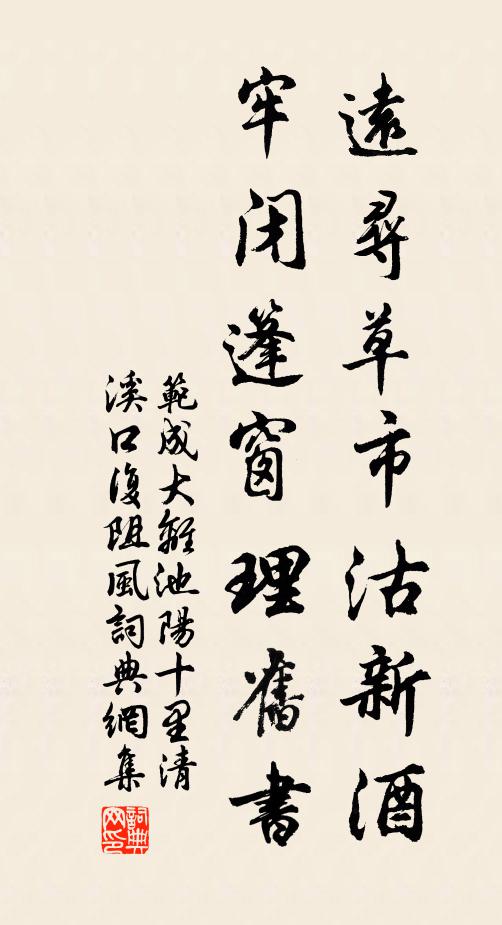 遠尋草市沽新酒
牢闭篷窗理舊書
範成大離池陽十里清
溪口復阻風詞典網集
詞典
网印